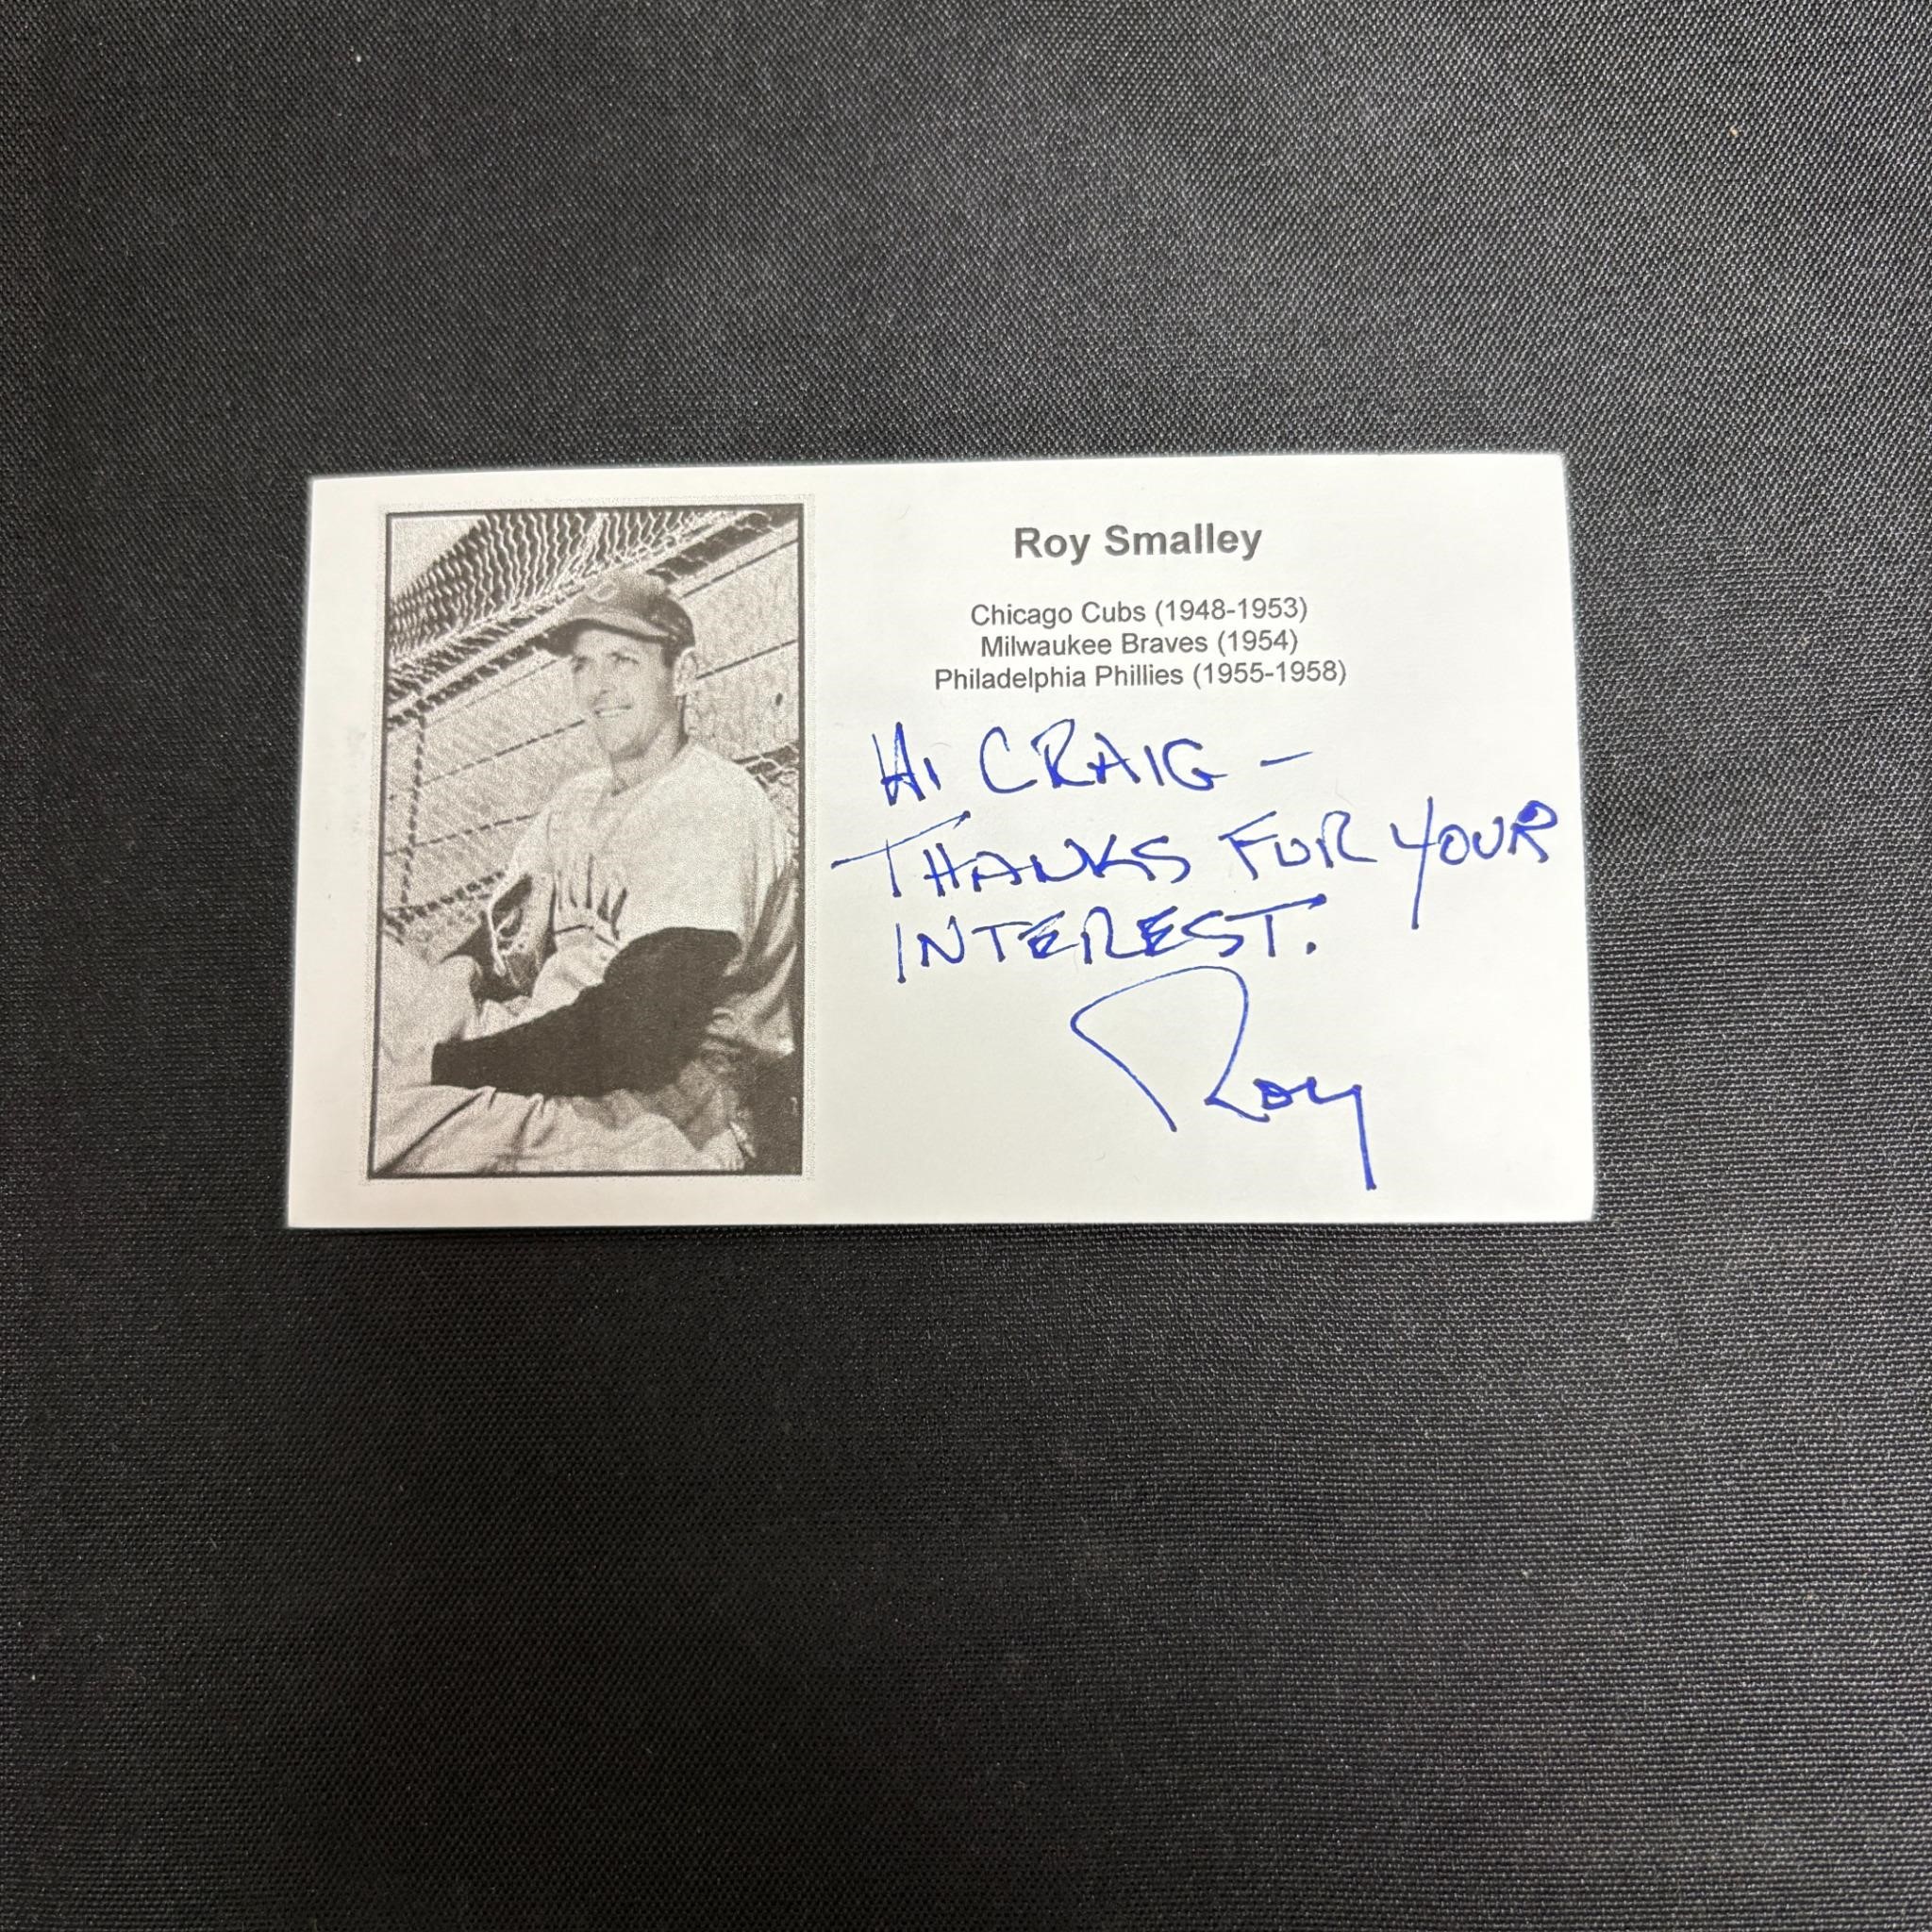 Roy Smalley
Chicago Cubs (1948-1953)
Milwaukee Braves (1954)
Philadelphia Phillies (1955-1958)
HI CRAIG -
THANKS FOR YOUR
INTEREST.
Roy